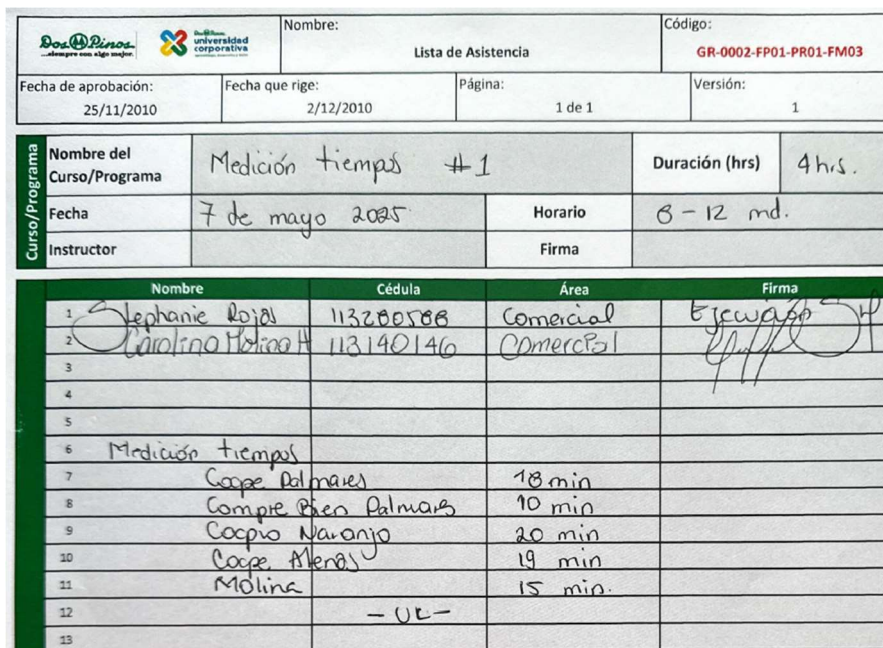 Dos Pinos
...siempre con algo mejor.
Dos Pinos
universidad
corporativa
Nombre:
Lista de Asistencia
Código:
GR-0002-FP01-PR01-FM03
Fecha de aprobación:
25/11/2010
Fecha que rige:
2/12/2010
Página:
1 de 1
Versión:
1
Curso/Programa
Nombre del
Curso/Programa
Medición tiempos #1
Duración (hrs)
4 hrs.
Fecha
7 de mayo 2025
Horario
8 - 12 md.
Instructor
Firma
Nombre Cédula Área Firma
1 Stephanie Rojas 113280588 Comercial Ejecución
2 Carolina Molina H 113140146 Comercial
3
4
5
6 Medición tiempos
7 Coope Palmares 18 min
8 Compre Bien Palmares 10 min
9 Naranjo 20 min
10 Coope Atenas 19 min
11 Molina 15 min.
12 - UL -
13